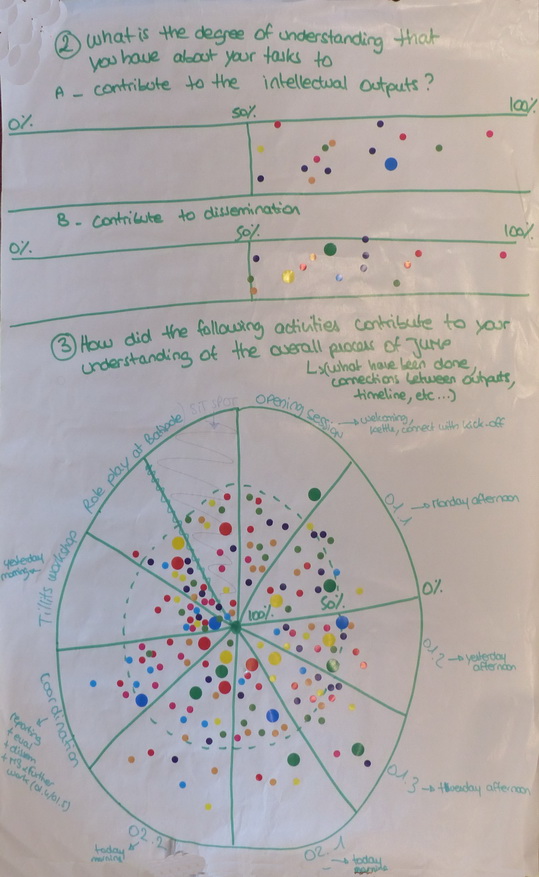 ② What is the degree of understanding that
you have about your tasks to
A - contribute to the intellectual outputs?
0% 50% 100%
B - contribute to dissemination
0% 50% 100%
③ How did the following activities contribute to your
understanding of the overall process of JUMP
↳ (what have been done,
connections between outputs,
timeline, etc...)
SIT SPOT
Opening session → welcoming,
kettle, connect with kick-off
Role play at
O1.1 → Monday afternoon
yesterday
morning
workshop
0%
50%
100%
O1.2 → yesterday
afternoon
Coordination
reporting
+ eval
+ dissem
+ further
work (O1.4/O1.5)
O1.3 → afternoon
O2.2
today
morning
O2.1
→ today